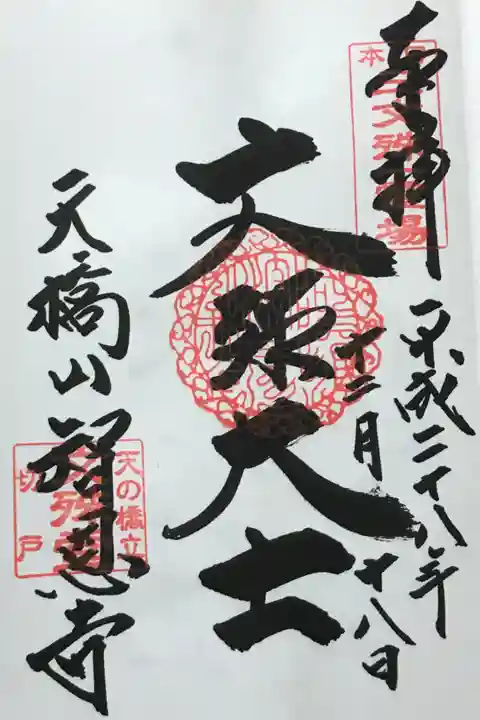 奉拝
日本三文殊霊場
平成二十八年
十二月十八日
文殊大士
天橋山智恩寺
天の橋立
文殊堂
切戸